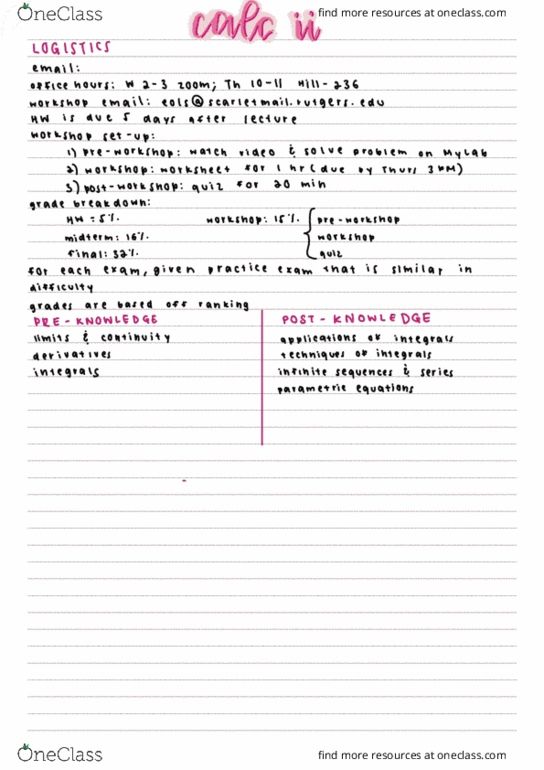 OneClass
find more resources at oneclass.com
calc ii
LOGISTICS
email:
office hours: W 2-3 zoom; Th 10-11 Hill-236
workshop email: eols@scarletmail.rutgers.edu
HW is due 5 days after lecture
workshop set-up:
1) pre-workshop: watch video & solve problem on MyLab
2) workshop: worksheet for 1 hr (due by Thurs 3PM)
3) post-workshop: quiz for 20 min
grade breakdown:
HW: 5%. workshop: 15%. pre-workshop
midterm: 16%. workshop
final: 32%. quiz
for each exam, given practice exam that is similar in
difficulty
grades are based off ranking
PRE-KNOWLEDGE
limits & continuity
derivatives
integrals
POST-KNOWLEDGE
applications of integrals
techniques of integrals
infinite sequences & series
parametric equations
OneClass
find more resources at oneclass.com